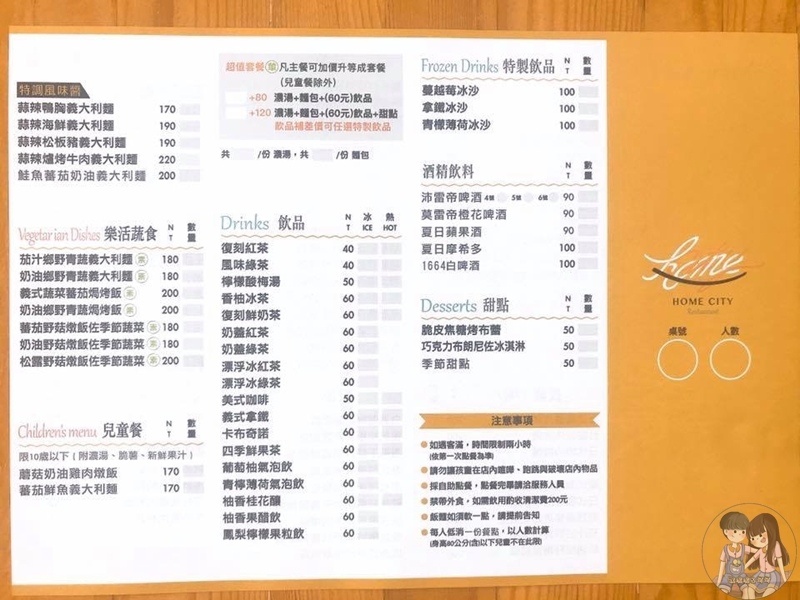 特調風味醬
蒜辣鴨胸義大利麵 170
蒜辣海鮮義大利麵 190
蒜辣松板豬義大利麵 190
蒜辣爐烤牛肉義大利麵 220
鮭魚蕃茄奶油義大利麵 200
Vegetarian Dishes 樂活蔬食 NT 數量
茄汁鄉野青蔬義大利麵 素 180
奶油鄉野青蔬義大利麵 素 180
義式蔬菜蕃茄焗烤飯 素 200
奶油鄉野青蔬焗烤飯 素 200
蕃茄野菇燉飯佐季節蔬菜 素 180
奶油野菇燉飯佐季節蔬菜 素 180
松露野菇燉飯佐季節蔬菜 素 200
Children's menu 兒童餐 NT 數量
限10歲以下 ( 附濃湯、脆薯、新鮮果汁 )
蘑菇奶油雞肉燉飯 170
蕃茄鮮魚義大利麵 170
超值套餐 凡主餐可加價升等成套餐
(兒童餐除外)
+80 濃湯+麵包+(60元)飲品
+120 濃湯+麵包+(60元)飲品+甜點
飲品補差價可任選特製飲品
共 /份 濃湯，共 /份 麵包
Drinks 飲品 NT 冰 ICE 熱 HOT
復刻紅茶 40
風味綠茶 40
檸檬酸梅湯 50
香柚冰茶 60
復刻鮮奶茶 60
奶蓋紅茶 60
奶蓋綠茶 60
漂浮冰紅茶 60
漂浮冰綠茶 60
美式咖啡 50
義式拿鐵 60
卡布奇諾 60
四季鮮果茶 60
葡萄柚氣泡飲 60
青檸薄荷氣泡飲 60
柚香桂花釀 60
柚香果醋飲 60
鳳梨檸檬果粒飲 60
Frozen Drinks 特製飲品 NT 數量
蔓越莓冰沙 100
拿鐵冰沙 100
青檬薄荷冰沙 100
酒精飲料 NT 數量
沛雷帝啤酒 4號 5號 6號 90
莫雷帝橙花啤酒 90
夏日蘋果酒 90
夏日摩希多 100
1664白啤酒 100
Desserts 甜點 NT 數量
脆皮焦糖烤布蕾 50
巧克力布朗尼佐冰淇淋 50
季節甜點 50
注意事項
如遇客滿，時間限制兩小時
(依第一次點餐為準)
請勿讓孩童在店內喧嘩、跑跳與破壞店內物品
採自助點餐，點餐完畢請洽服務人員
禁帶外食，如需飲用酌收清潔費200元
飯麵如須軟一點，請提前告知
每人低消一份餐點，以人數計算
(身高80公分(含)以下兒童不在此限)
home
HOME CITY
Restaurant
桌號 人數